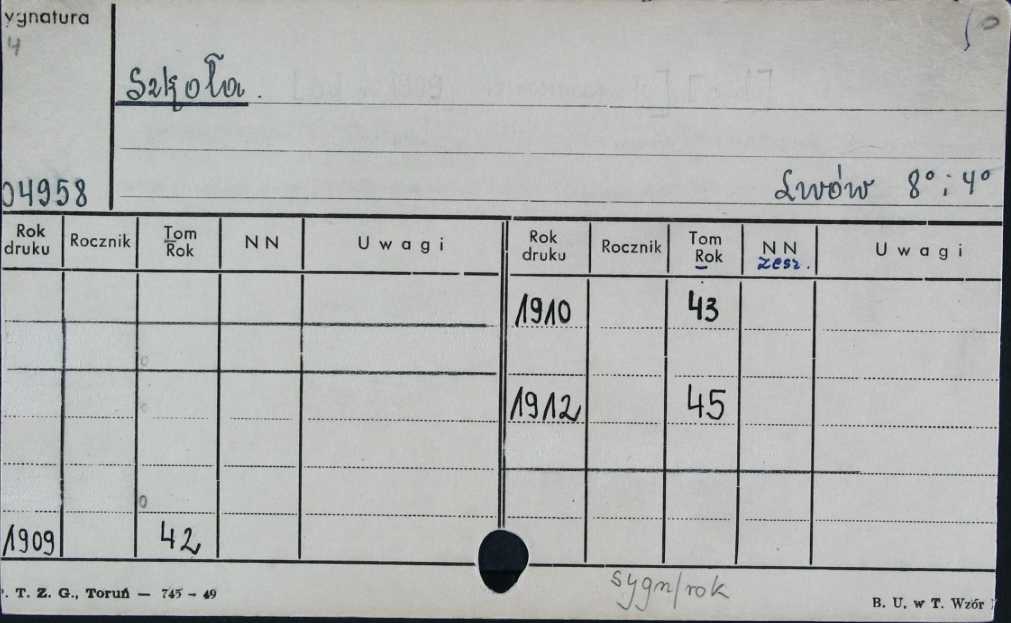 ygnatura
4
Szkoła.
04958
Lwów 8° i 4°
Rok druku Rocznik Tom Rok NN Uwagi Rok druku Rocznik Tom Rok NN zesz. Uwagi
1910 43
1912 45
1909 42
sygn/rok
. T. Z. G., Toruń — 745 - 49
B. U. w T. Wzór